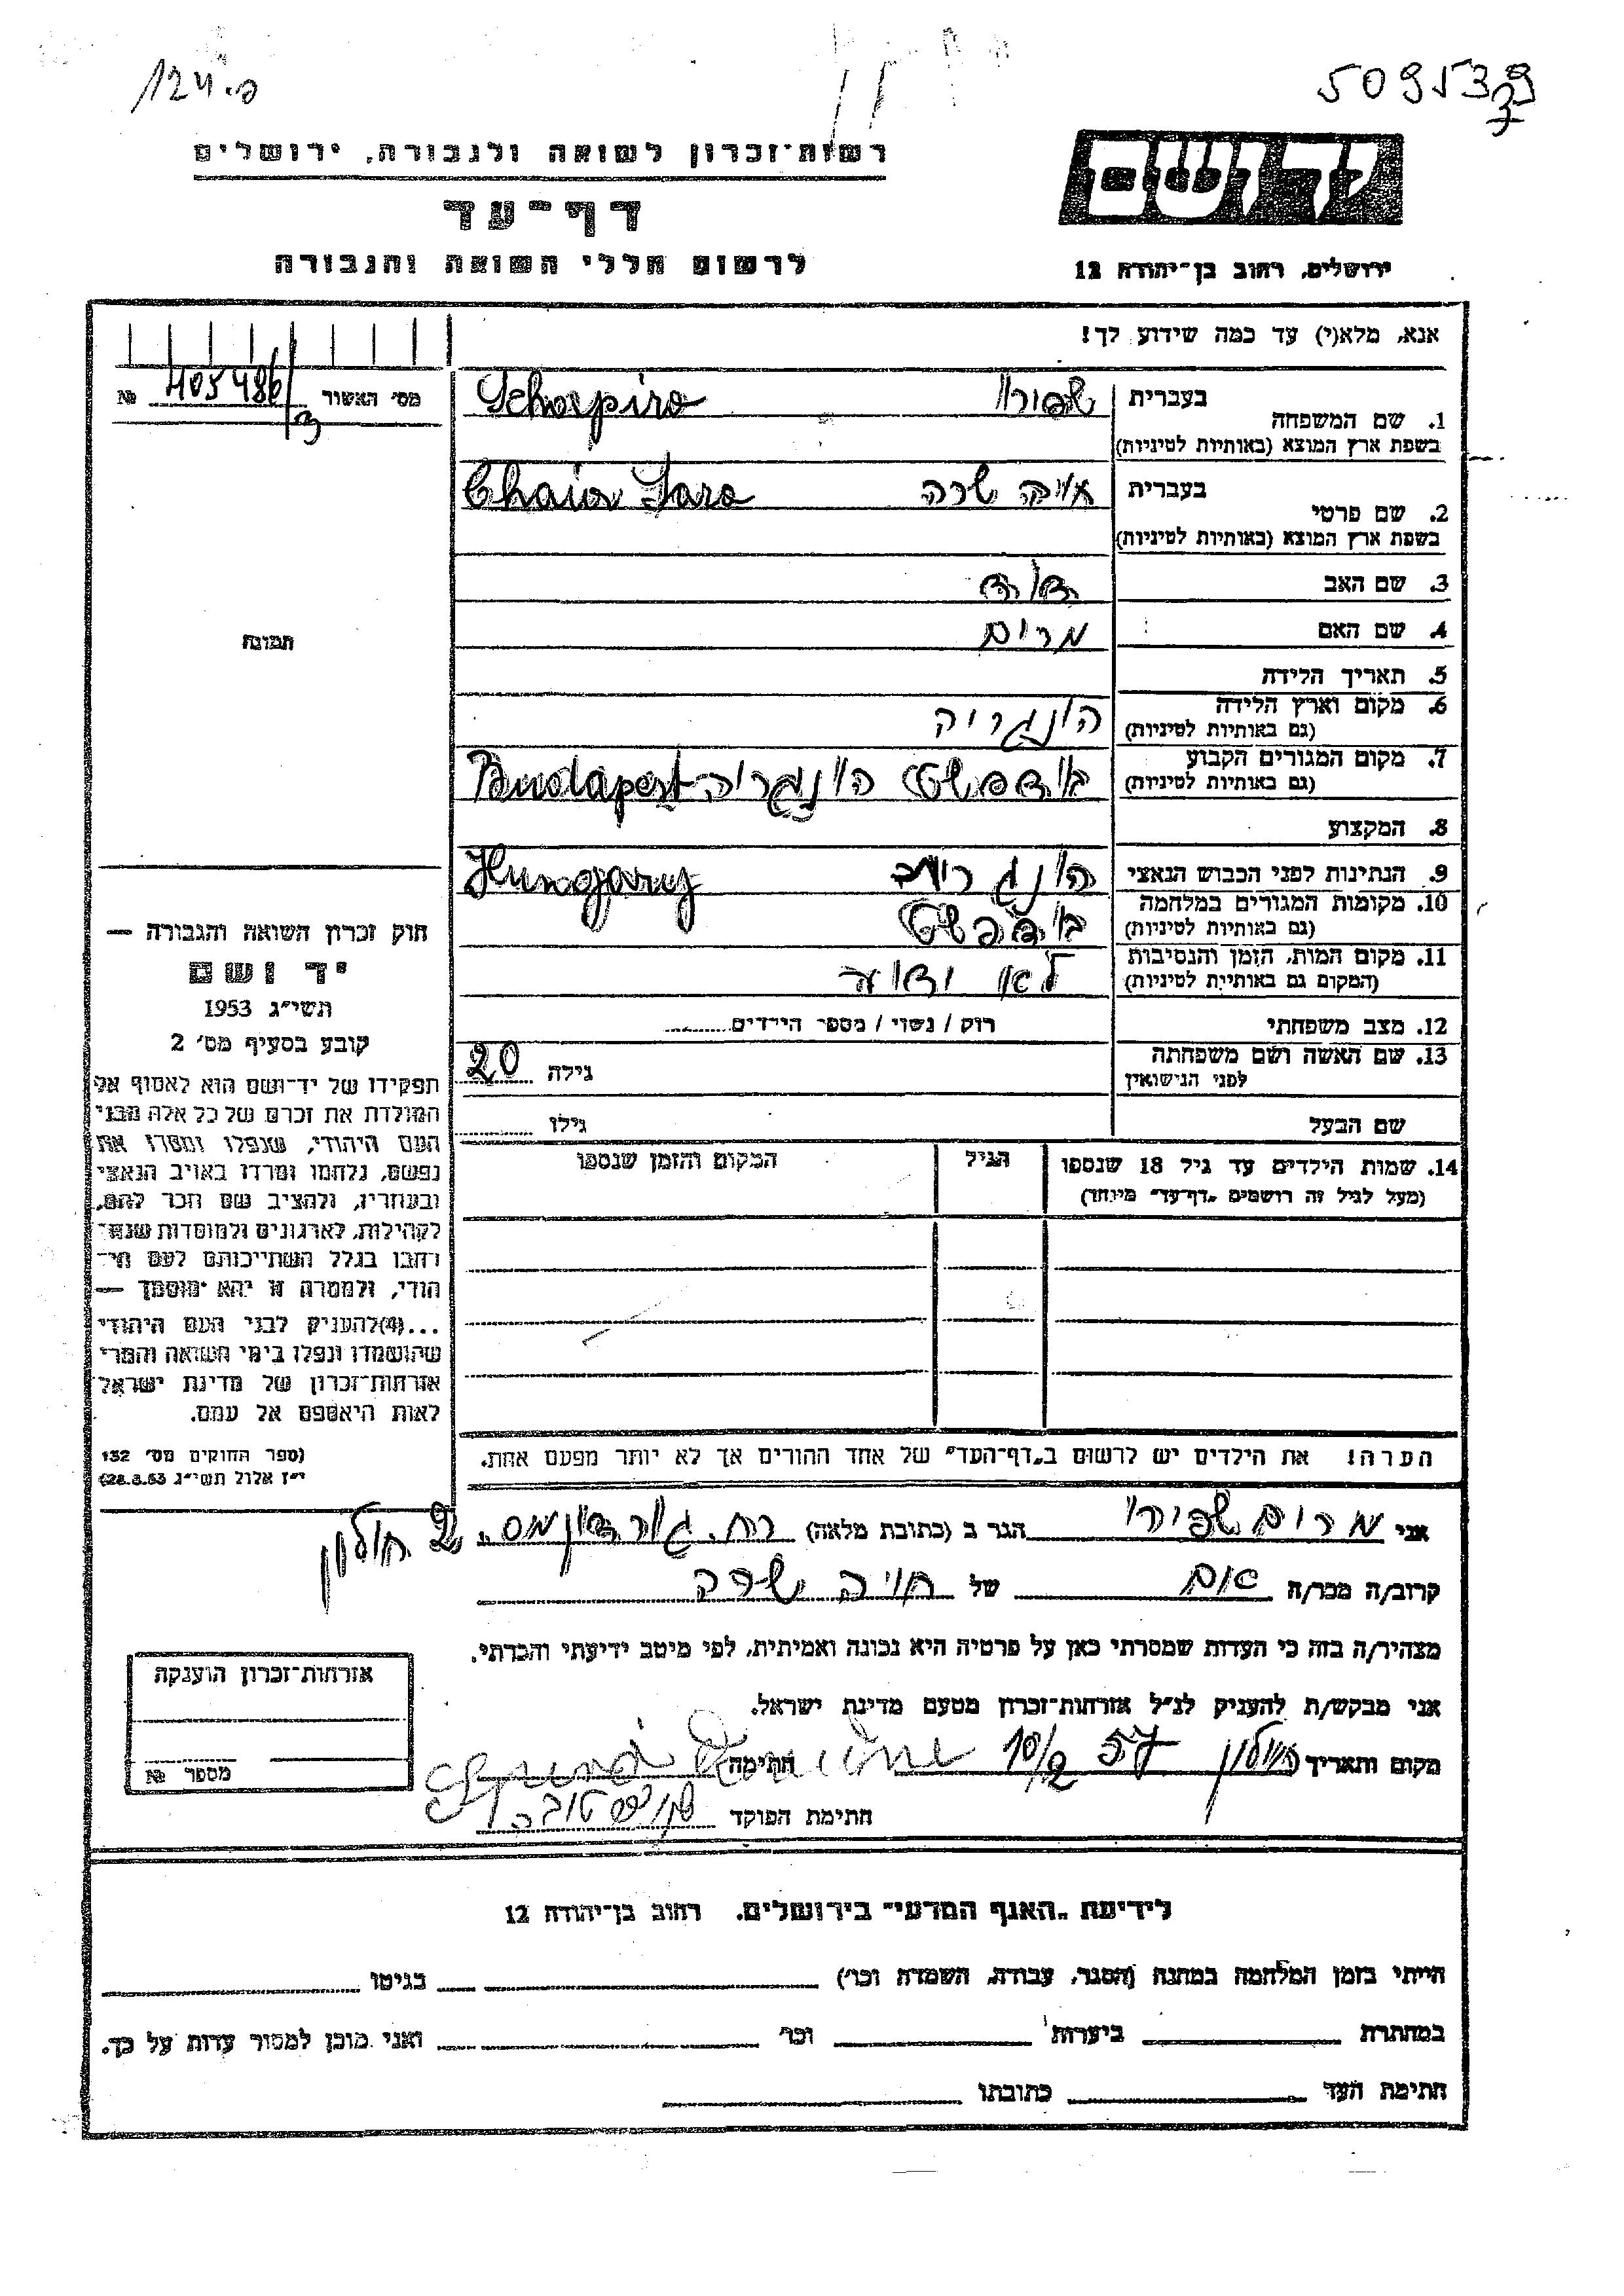 124.פ
509539
רשות־זכרון לשואה ולגבורה, ירושלים
דף־עד
לרשום חללי השואה והגבורה
ידושם
ירושלים, רחוב בן־יהודה 12
אנא, מלא(י) עד כמה שידוע לך!
מס׳ האשור № 405486/3
1. שם המשפחה בעברית שפירו
בשפת ארץ המוצא (באותיות לטיניות) Schapiro
2. שם פרטי בעברית חיה שרה
בשפת ארץ המוצא (באותיות לטיניות) Chaia Sara
3. שם האב דוד
4. שם האם מרים
תמונה
5. תאריך הלידה
6. מקום וארץ הלידה הונגריה
(גם באותיות לטיניות)
7. מקום המגורים הקבוע בודפשט הונגריה Budapest
(גם באותיות לטיניות)
8. המקצוע
9. הנתינות לפני הכבוש הנאצי הונגרית Hungary
10. מקומות המגורים במלחמה בודפשט
(גם באותיות לטיניות)
11. מקום המות, הזמן והנסיבות לא ידוע
(המקום גם באותיות לטיניות)
12. מצב משפחתי רוק / נשוי / מספר הילדים
13. שם האשה ושם משפחתה גילה 20
לפני הנישואין
שם הבעל גילו
14. שמות הילדים עד גיל 18 שנספו הגיל המקום והזמן שנספו
(מעל לגיל זה רושמים „דף־עד״ מיוחד)
חוק זכרון השואה והגבורה —
יד ושם
תשי״ג 1953
קובע בסעיף מס׳ 2
תפקידו של יד־ושם הוא לאסוף אל
המולדת את זכרם של כל אלה מבני
העם היהודי, שנפלו ומסרו את
נפשם, נלחמו ומרדו באויב הנאצי
ובעוזריו, ולהציב שם וזכר להם,
לקהילות, לארגונים ולמוסדות שנח־
רבו בגלל השתייכותם לעם הי־
הודי, ולמטרה זו יהא מוסמך —
...(4)להעניק לבני העם היהודי
שהושמדו ונפלו בימי השואה והמרי
אזרחות־זכרון של מדינת ישראל
לאות היאספם אל עמם.
(ספר החוקים מס׳ 132
י״ז אלול תשי״ג 28.8.53)
הערה! את הילדים יש לרשום ב„דף־העד״ של אחד ההורים אך לא יותר מפעם אחת.
אני מרים שפירו הגר ב (כתובת מלאה) רח. גורדון מס. 2 חולון
קרוב/ה מכר/ה אם של חיה שרה
מצהיר/ה בזה כי העדות שמסרתי כאן על פרטיה היא נכונה ואמיתית, לפי מיטב ידיעתי והכרתי.
אני מבקש/ת להעניק לנ״ל אזרחות־זכרון מטעם מדינת ישראל.
מקום ותאריך חולון 10/2 57 חתימה
חתימת הפוקד
אזרחות־זכרון הוענקה
מספר №
לידיעת „האגף המדעי״ בירושלים. רחוב בן־יהודה 12
הייתי בזמן המלחמה במחנה (הסגר, עבודה, השמדה וכו׳) בגיטו
במחתרת ביערות וכו׳ ואני מוכן למסור עדות על כך.
חתימת העד כתובתו